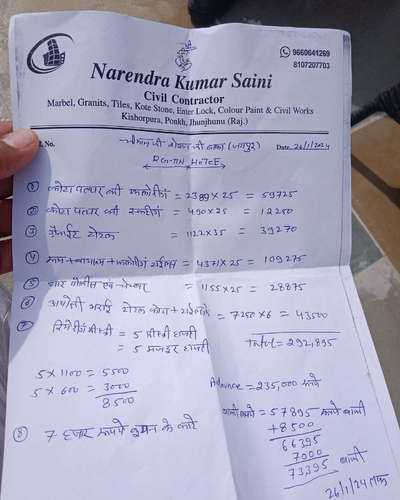 9660641269
8107207703
Narendra Kumar Saini
Civil Contractor
Marbel, Granits, Tiles, Kote Stone, Enter Lock, Colour Paint & Civil Works
Kishorpura, Ponkh, Jhunjhunu (Raj.)
No. (जयपुर) Date 26/1/2024
① कोटा पत्थर की = 2389 × 25 = 59725
② कोटा पत्थर की = 490 × 25 = 12250
③ ग्रेनाईट = 1122 × 35 = 39270
④ टाईल्स = 4371 × 25 = 109275
⑤ = 1155 × 25 = 28875
⑥ = 7250 × 6 = 43500
⑦ = 5 मिस्त्री हाजरी
= 5 मजदूर हाजरी
Total = 292,895
5 × 1100 = 5500
5 × 600 = 3000
8500
Advance = 235,000 रुपये
बाकी = 57895 रुपये बाकी
+ 8500
66395
7000
73,395 बाकी
⑧ 7 हजार रुपये के
26/1/24 तक